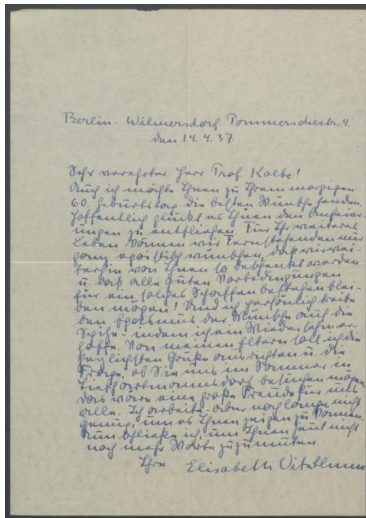 Berlin-Wilmersdorf, Pommerschestr. 4
den 14.4.37
Sehr verehrter Herr Prof. Kolbe!
Auch ich möchte Ihnen zu Ihrem morgigen
60. Geburtstag die besten Wünsche senden.
Hoffentlich glückt es Ihnen den Anfeier-
ungen zu entfliehen. Für Ihr weiteres
Leben können wir Fernstehenden nur
ganz egoistisch wünschen, dass wir wei-
terhin von Ihnen so beschenkt werden
u. dass alle guten Vorbedingungen
für ein solches Schaffen bestehen blei-
ben mögen! Und ich persönlich treibe
den Egoismus der Wünsche auf die
Spitze - indem ich ein Wiedersehn er-
hoffe. Von meinen Eltern soll ich die
herzlichsten Grüße ausrichten u. die
Frage, ob Sie uns im Sommer in
besuchen mögen
das wäre eine große Freude für uns
alle. Ich arbeite - aber noch lange nicht
genug, um es Ihnen zeigen zu können
Nun schließe ich, um Ihnen heut nicht
noch mehr Worte zuzumuten
Ihre Elisabeth